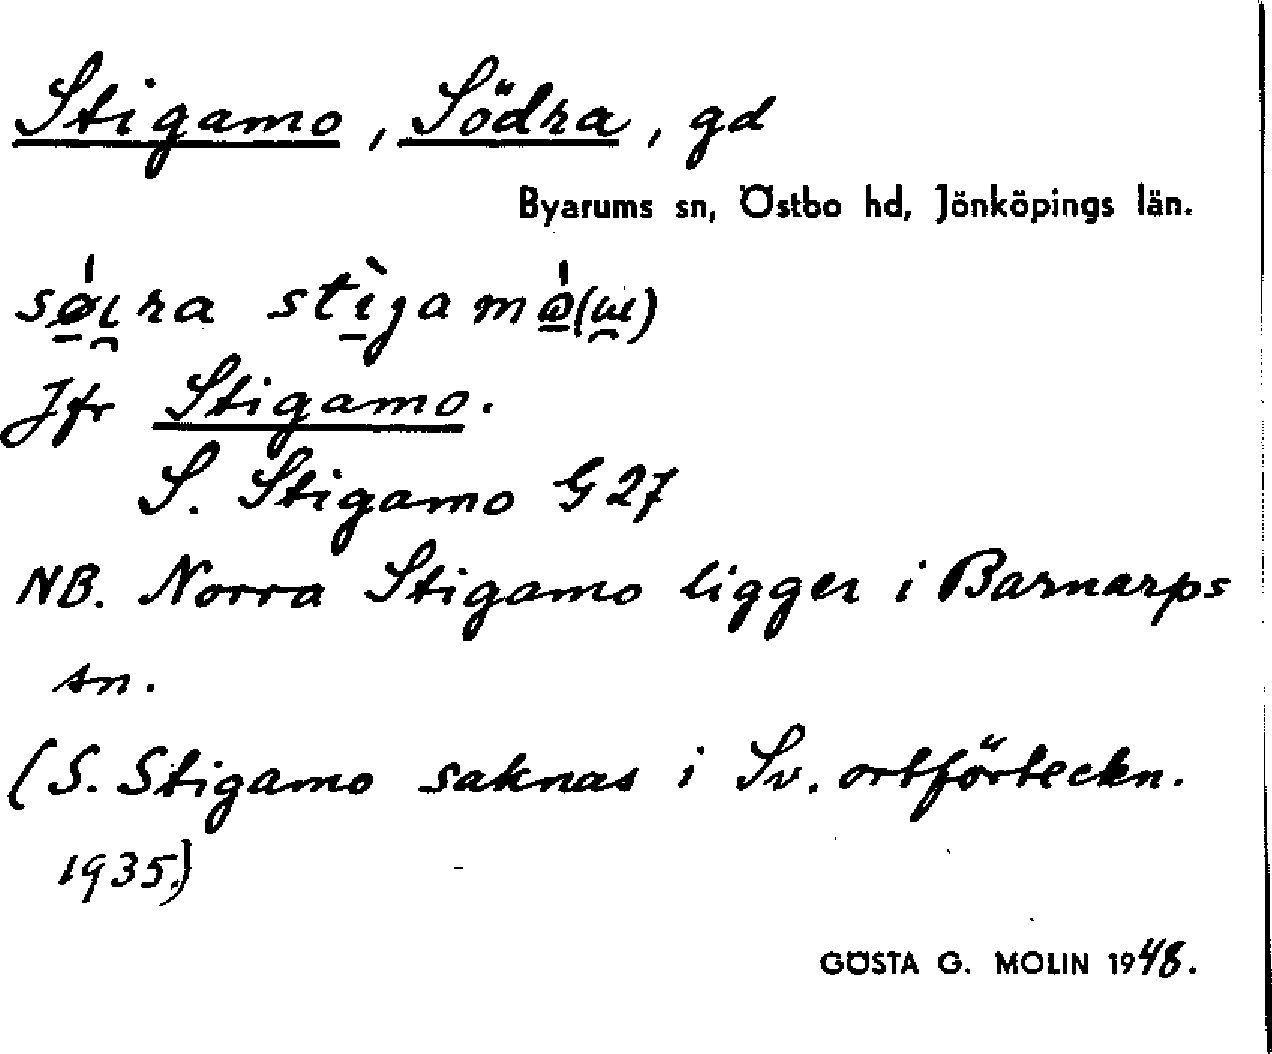 Stigamo, Södra, gd
Byarums sn, Östbo hd, Jönköpings län.
Jfr Stigamo.
S. Stigamo G 27
NB. Norra Stigamo ligger i Barnarps
sn.
(S. Stigamo saknas i Sv. ortförteckn.
1935.)
GÖSTA G. MOLIN 1948.